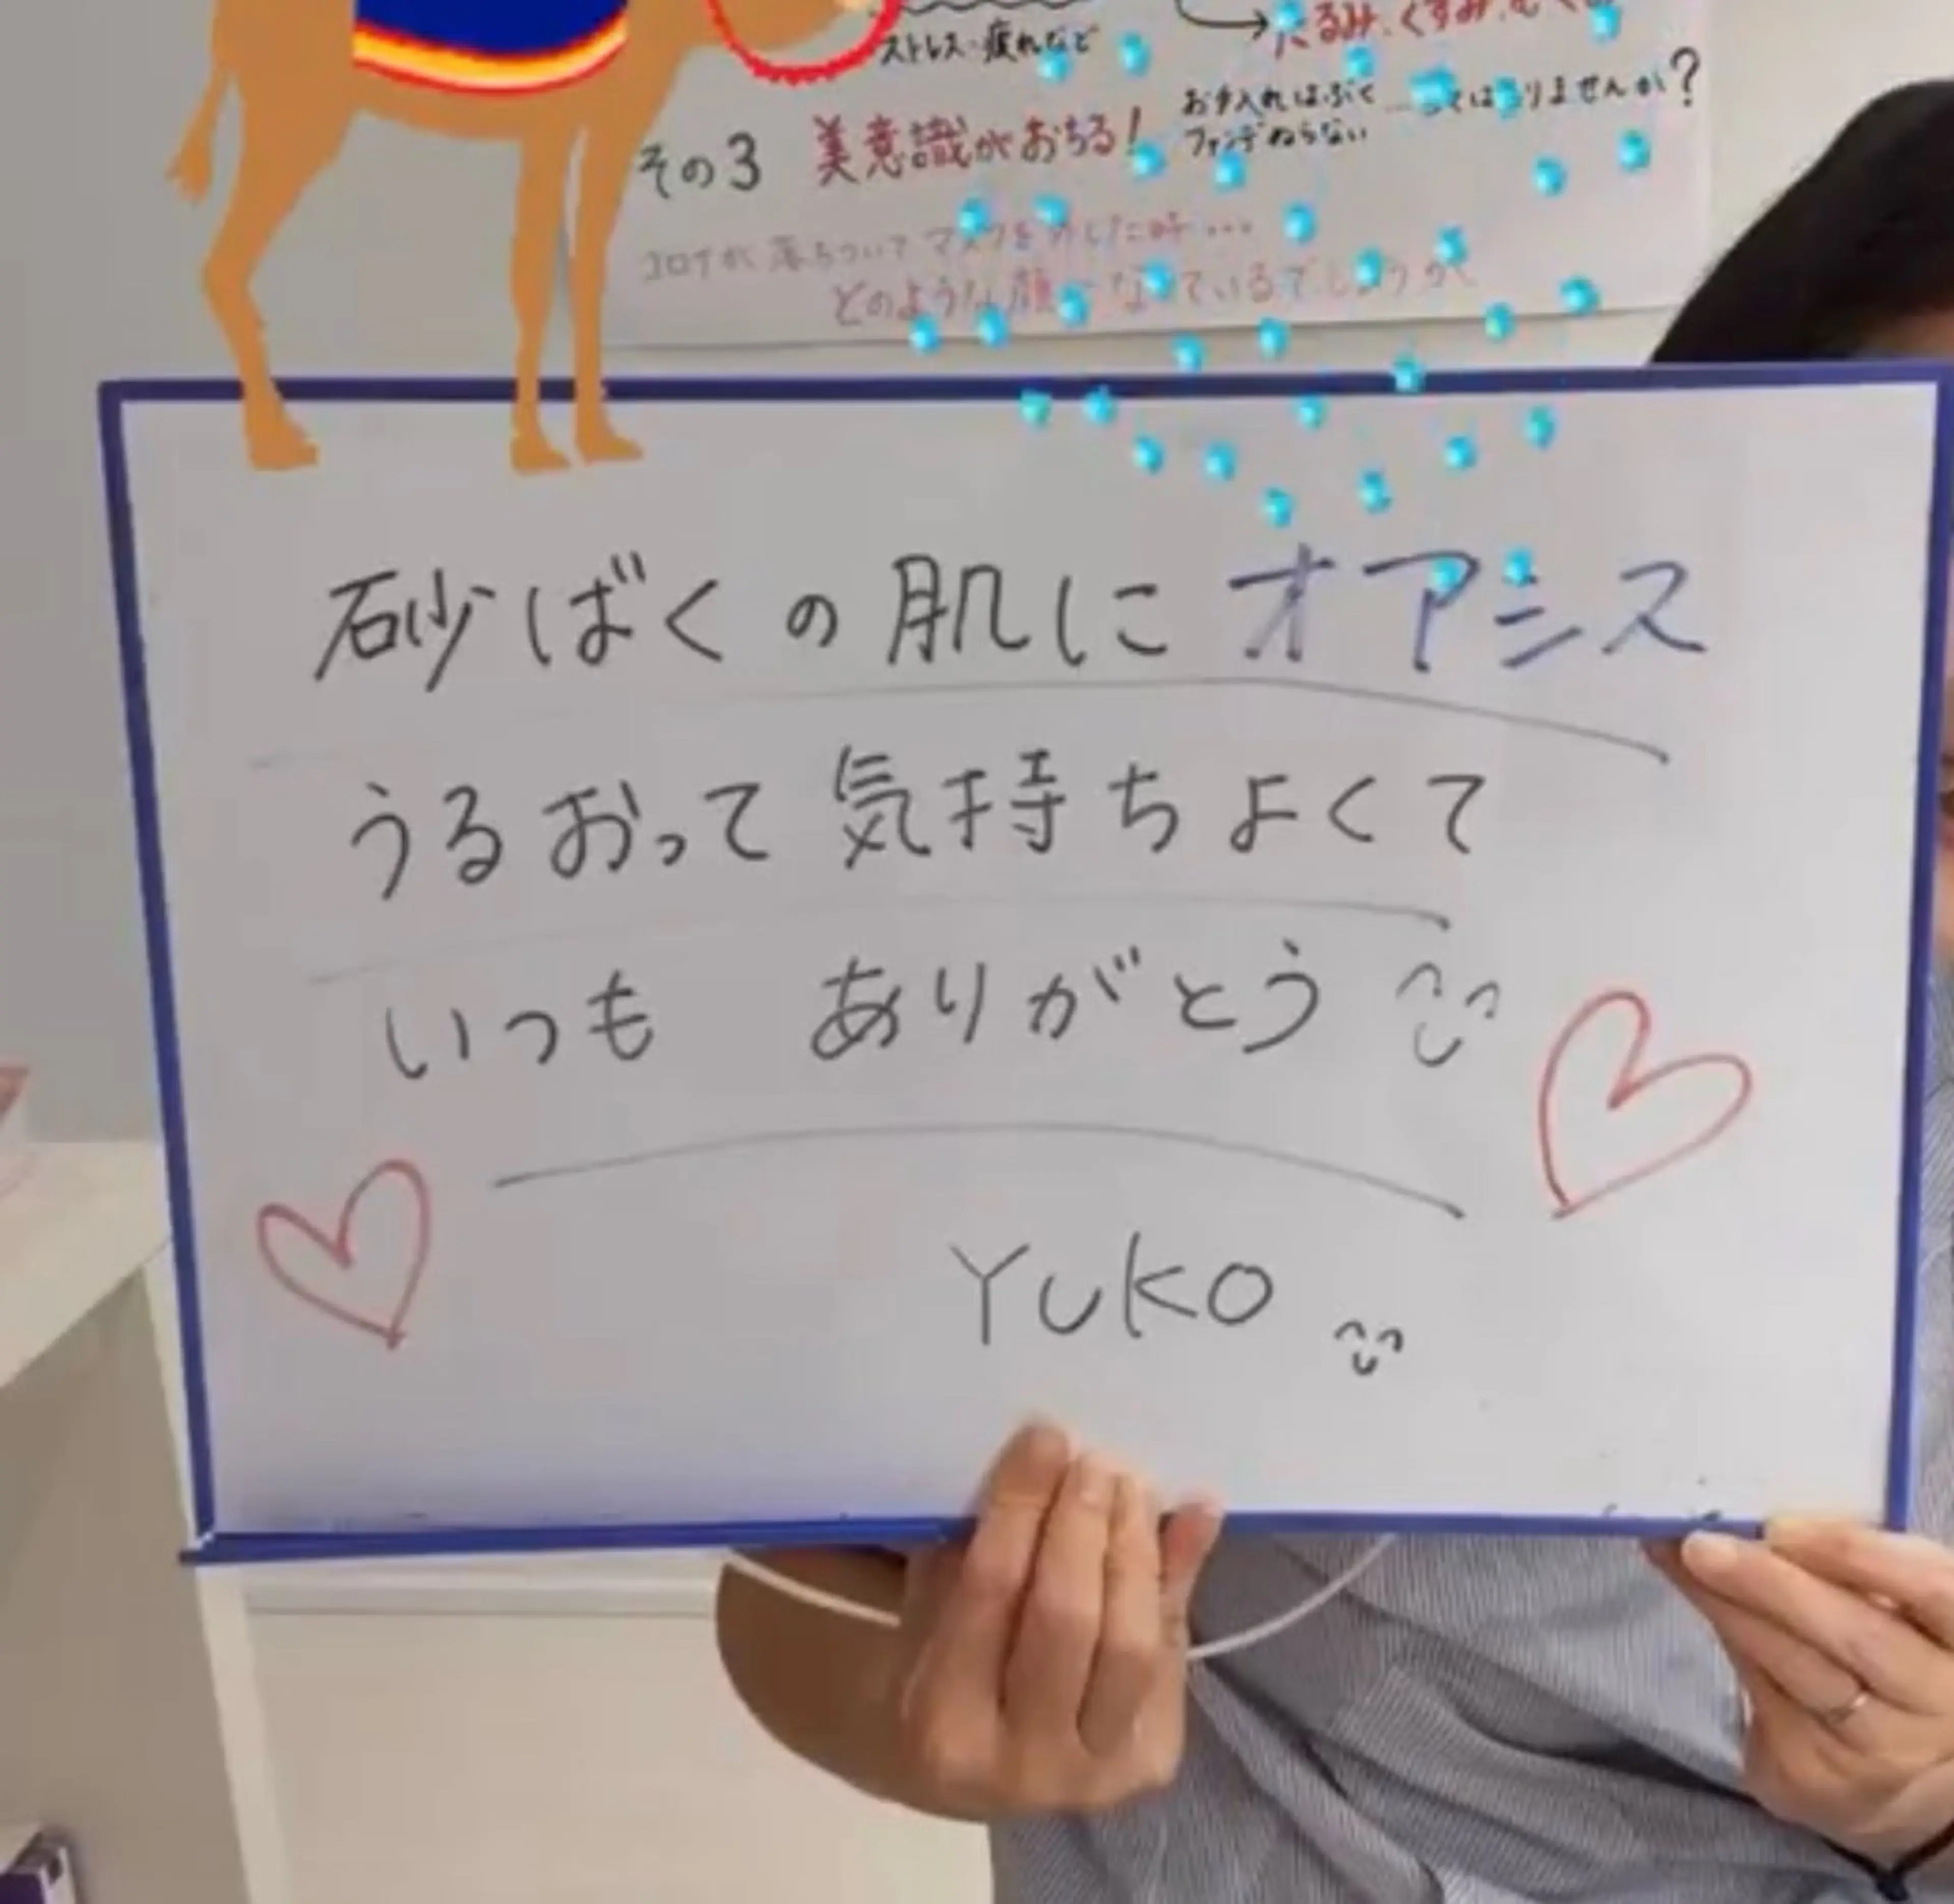 ストレス・疲れなど
たるみ、くすみ、む
その3 美意識がおちる!
お手入れはぶく
ファンデぬらない
はありませんか?
コロナが落ちついてマスクをかした時…
どのような顔になっているでしょうか
砂ばくの肌にオアシス
うるおって気持ちよくて
いつも ありがとう
YUKO